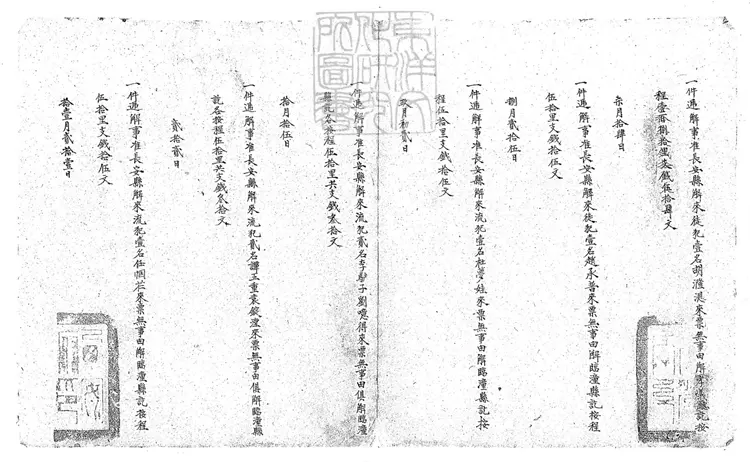 一件遞解事准長安縣解來徒犯壹名胡滙淇來票無事由解臨潼縣訖按
程壹百捌拾里支錢伍拾肆文
柒月拾肆日
一件遞解事准長安縣解來徒犯壹名趙永普來票無事由解臨潼縣訖按程
伍拾里支錢拾伍文
捌月貳拾伍日
一件遞解事准長安縣解來流犯壹名杜夢娃來票無事由解臨潼縣訖按
程伍拾里支錢拾伍文
玖月初貳日
一件遞解事准長安縣解來流犯貳名李 子劉 得來票無事由俱解臨潼
縣訖各按程伍拾里共支錢叁拾文
拾月拾伍日
一件遞解事准長安縣解來流犯貳名譚玉重袁 澄來票無事由俱解臨潼縣
訖各按程伍拾里共支錢叁拾文
貳拾貳日
一件遞解事准長安縣解來流犯壹名任 來票無事由解臨潼縣訖按程
伍拾里支錢拾伍文
拾壹月貳拾壹日